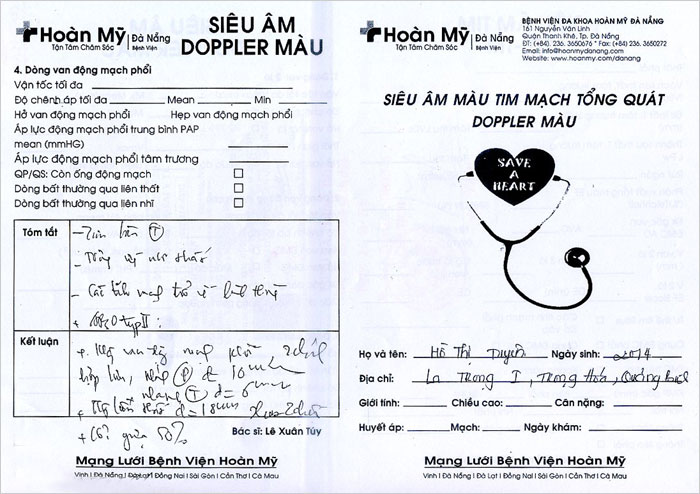 Hoàn Mỹ | Đà Nẵng
Tận Tâm Chăm Sóc Bệnh Viện
SIÊU ÂM
DOPPLER MÀU
4. Dòng van động mạch phổi
Vận tốc tối đa
Độ chênh áp tối đa Mean Min
Hở van động mạch phổi Hẹp van động mạch phổi
Áp lực động mạch phổi trung bình PAP
mean (mmHG)
Áp lực động mạch phổi tâm trương
QP/QS: Còn ống động mạch
Dòng bất thường qua liên thất
Dòng bất thường qua liên nhĩ
Tóm tắt
- Tim bên T
Kết luận
P d = 10mm
T d = 6mm
d = 18mm
50%
Bác sĩ: Lê Xuân Túy
Mạng Lưới Bệnh Viện Hoàn Mỹ
Vinh | Đà Nẵng | Đà Lạt | Đồng Nai | Sài Gòn | Cần Thơ | Cà Mau
Hoàn Mỹ | Đà Nẵng
Tận Tâm Chăm Sóc Bệnh Viện
BỆNH VIỆN ĐA KHOA HOÀN MỸ ĐÀ NẴNG
161 Nguyễn Văn Linh
Quận Thanh Khê, Tp. Đà Nẵng
ĐT: (+84). 236. 3650676 * Fax: (+84). 236. 3650272
Email: info@hoanmydanang.com
Website: www.hoanmy.com/danang
SIÊU ÂM MÀU TIM MẠCH TỔNG QUÁT
DOPPLER MÀU
SAVE
A
HEART
Họ và tên: Hồ Thị Duyên Ngày sinh: 2014
Địa chỉ: La Trọng I, Trọng Hóa, Quảng Bình
Giới tính: Chiều cao: Cân nặng:
Huyết áp: Mạch: Ngày khám:
Mạng Lưới Bệnh Viện Hoàn Mỹ
Vinh | Đà Nẵng | Đà Lạt | Đồng Nai | Sài Gòn | Cần Thơ | Cà Mau